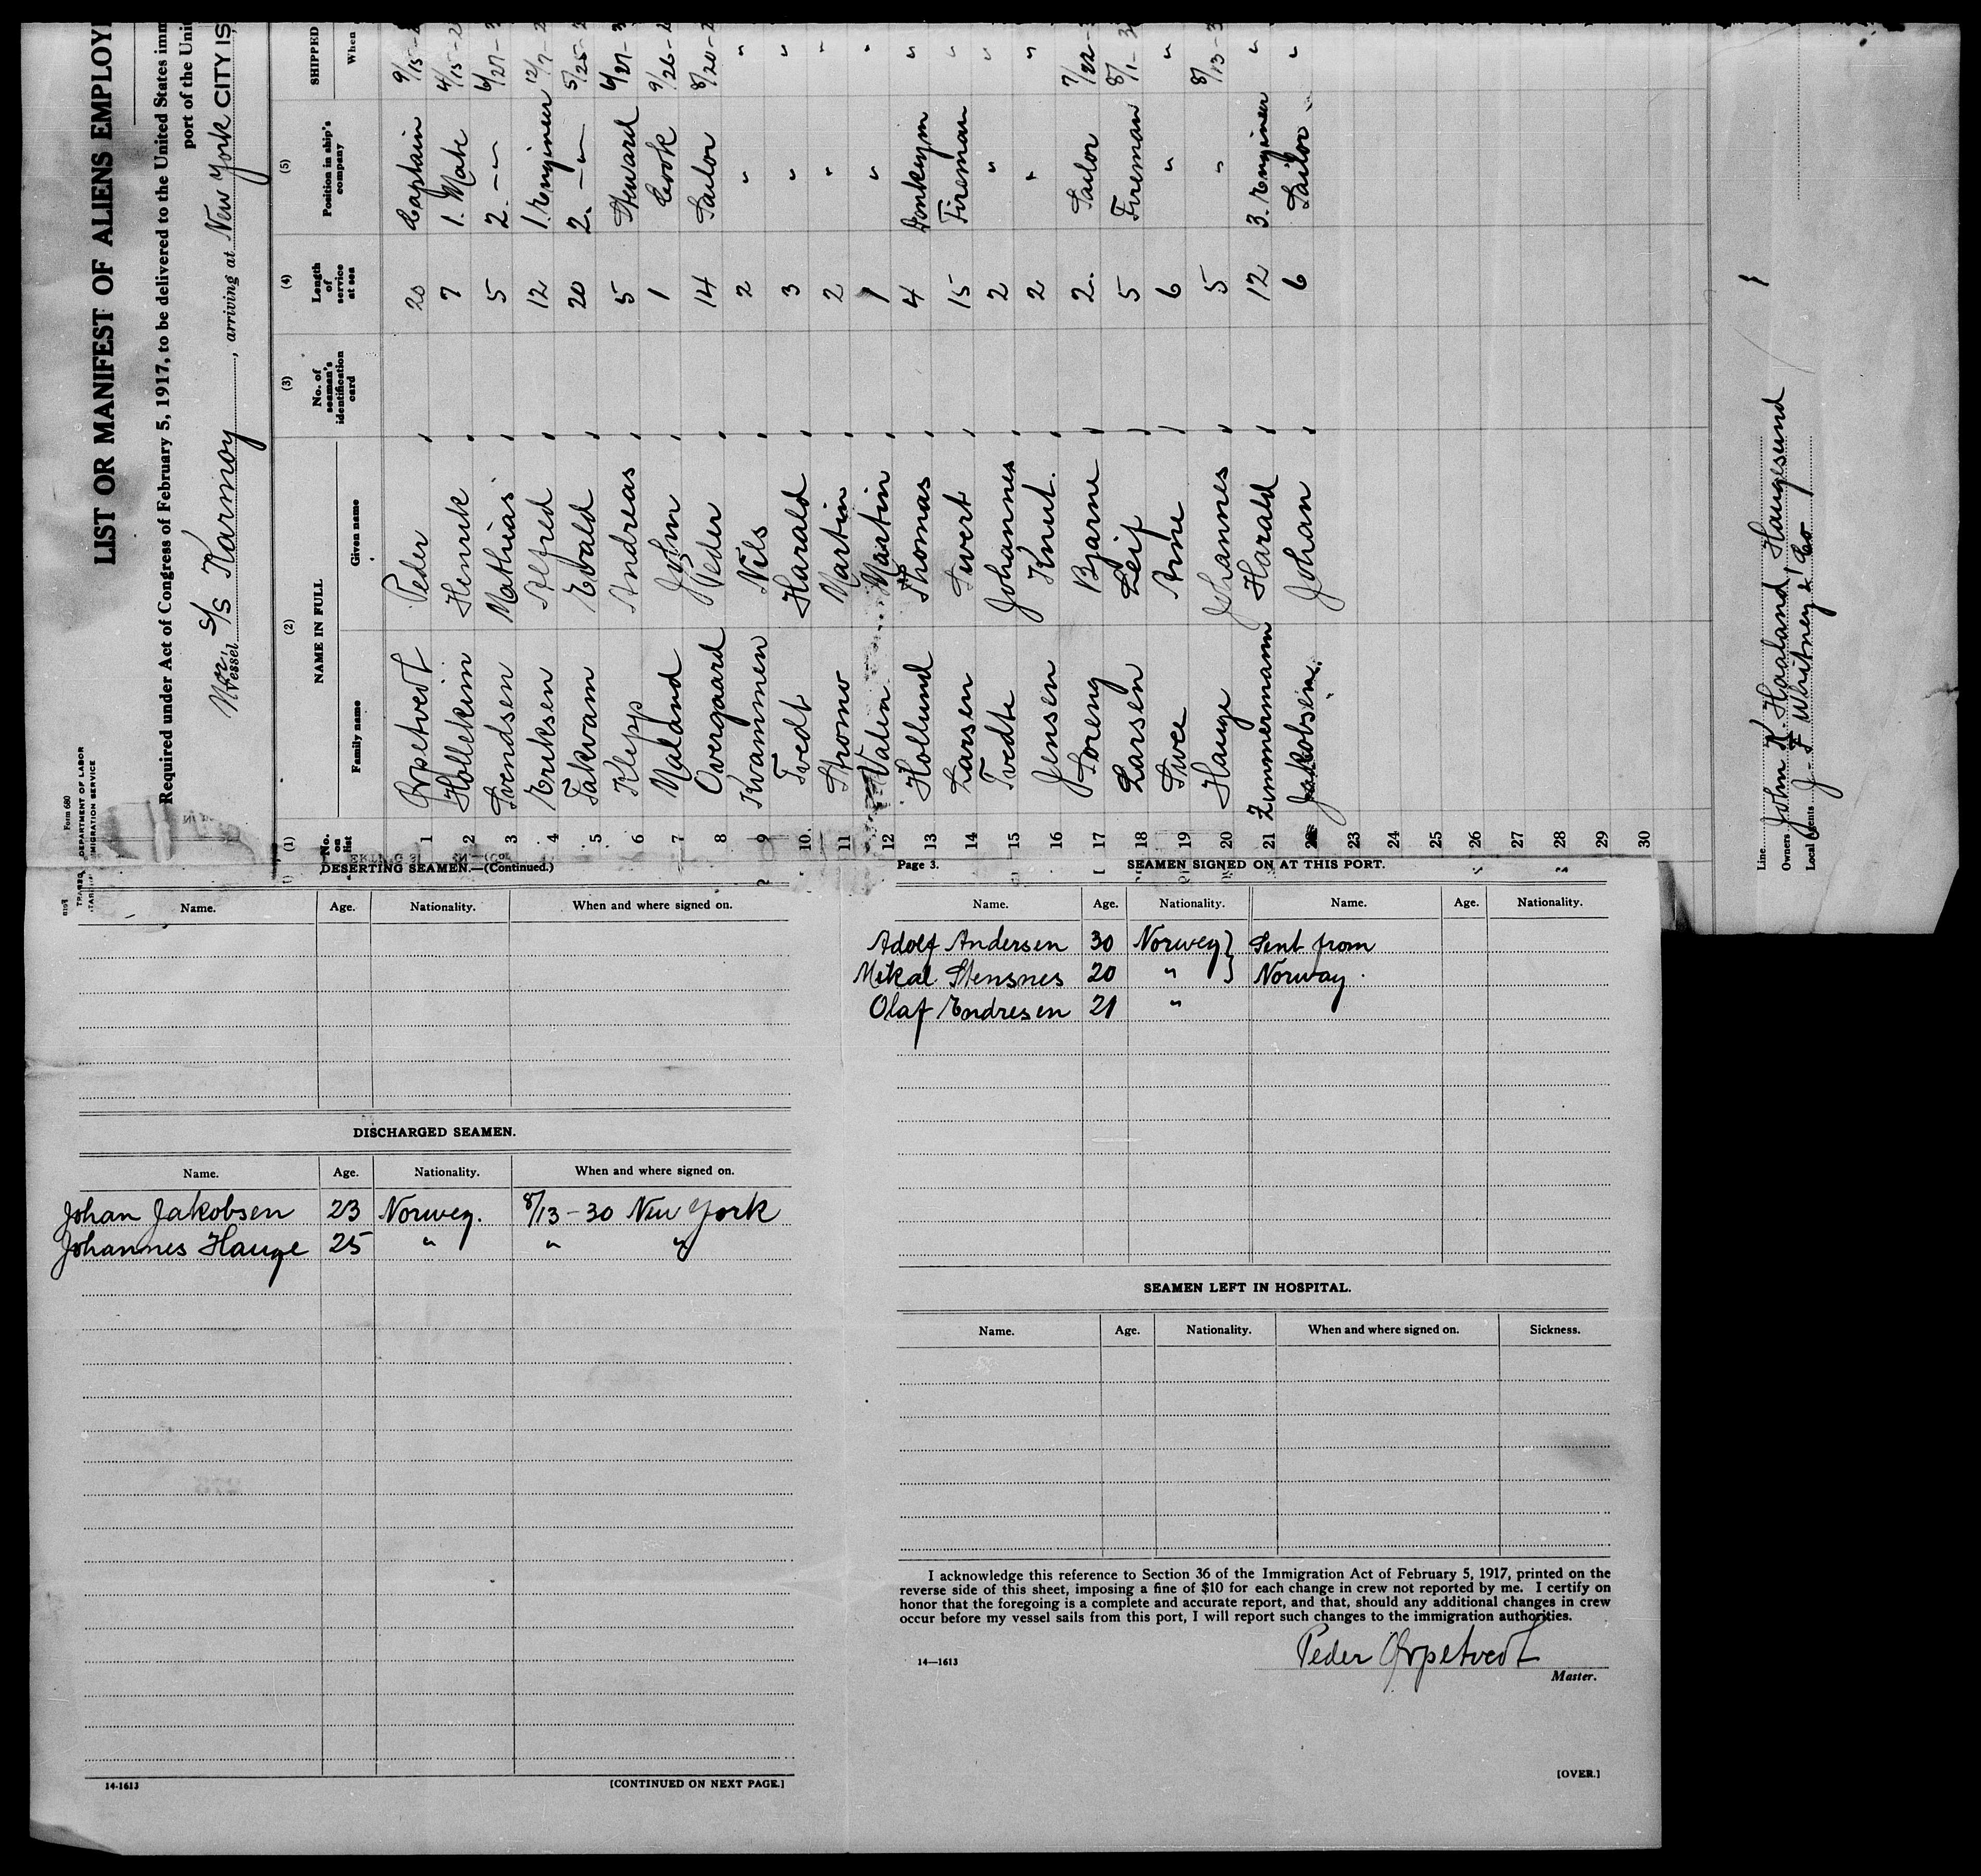 Form 680
DEPARTMENT OF LABOR
IMMIGRATION SERVICE
LIST OR MANIFEST OF ALIENS EMPLOY
Required under Act of Congress of February 5, 1917, to be delivered to the United States imm
port of the Unit
Nor. Vessel S/S Karmoy, arriving at New York CITY IS
(1) (2) (3) (4) (5)
No. on list NAME IN FULL No. of seaman's identification card Length of service at sea Position in ship's company SHIPPED
Family name Given name When
1 Orpetvedt Peder 20 Captain 9/15-2
2 Hollekim Henrik 7 1. Mate 4/15-2
3 Svendsen Mathias 5 2. -"- 6/27-3
4 Eriksen Alfred 12 1. Engineer 12/7-2
5 Takvam Edvald 20 2. -"- 5/25-2
6 Klepp Andreas 5 Steward 6/27-3
7 Maland John 1 Cook 9/26-2
8 Overgaard Peder 14 Sailor 8/20-2
9 Kvammen Nils 2 " "
10 Tvedt Harald 3 " "
11 Stromo Martin 2 " "
12 Valen Martin 1 " "
13 Hollund Thomas 4 Donkeym "
14 Larsen Sivert 15 Fireman "
15 Tvedte Johannes 2 " "
16 Jensen Knut. 2 " "
17 Soreng Bjarne 2. Sailor 7/22-
18 Larsen Leif 5 Fireman 8/1-3
19 Swee Arne 6 " "
20 Hauge Johannes 5 " 8/13-3
21 Zimmermann Harald 12 3. Engineer "
22 Jakobsen Johan 6 Sailor "
23
24
25
26
27
28
29
30
Line
Owners John K. Haaland, Haugesund
Local Agents J. F Whitney & Co
DESERTING SEAMEN.—(Continued.)
Name. Age. Nationality. When and where signed on.
DISCHARGED SEAMEN.
Name. Age. Nationality. When and where signed on.
Johan Jakobsen 23 Norweg. 8/13-30 New York
Johannes Hauge 25 " " "
14-1613
[CONTINUED ON NEXT PAGE.]
Page 3.
SEAMEN SIGNED ON AT THIS PORT.
Name. Age. Nationality. Name. Age. Nationality.
Adolf Andersen 30 Norweg } Sent from
Mikal Stensnes 20 " } Norway.
Olaf Endresen 21 "
SEAMEN LEFT IN HOSPITAL.
Name. Age. Nationality. When and where signed on. Sickness.
I acknowledge this reference to Section 36 of the Immigration Act of February 5, 1917, printed on the
reverse side of this sheet, imposing a fine of $10 for each change in crew not reported by me. I certify on
honor that the foregoing is a complete and accurate report, and that, should any additional changes in crew
occur before my vessel sails from this port, I will report such changes to the immigration authorities.
Peder Orpetvedt
Master.
14—1613
[OVER.]